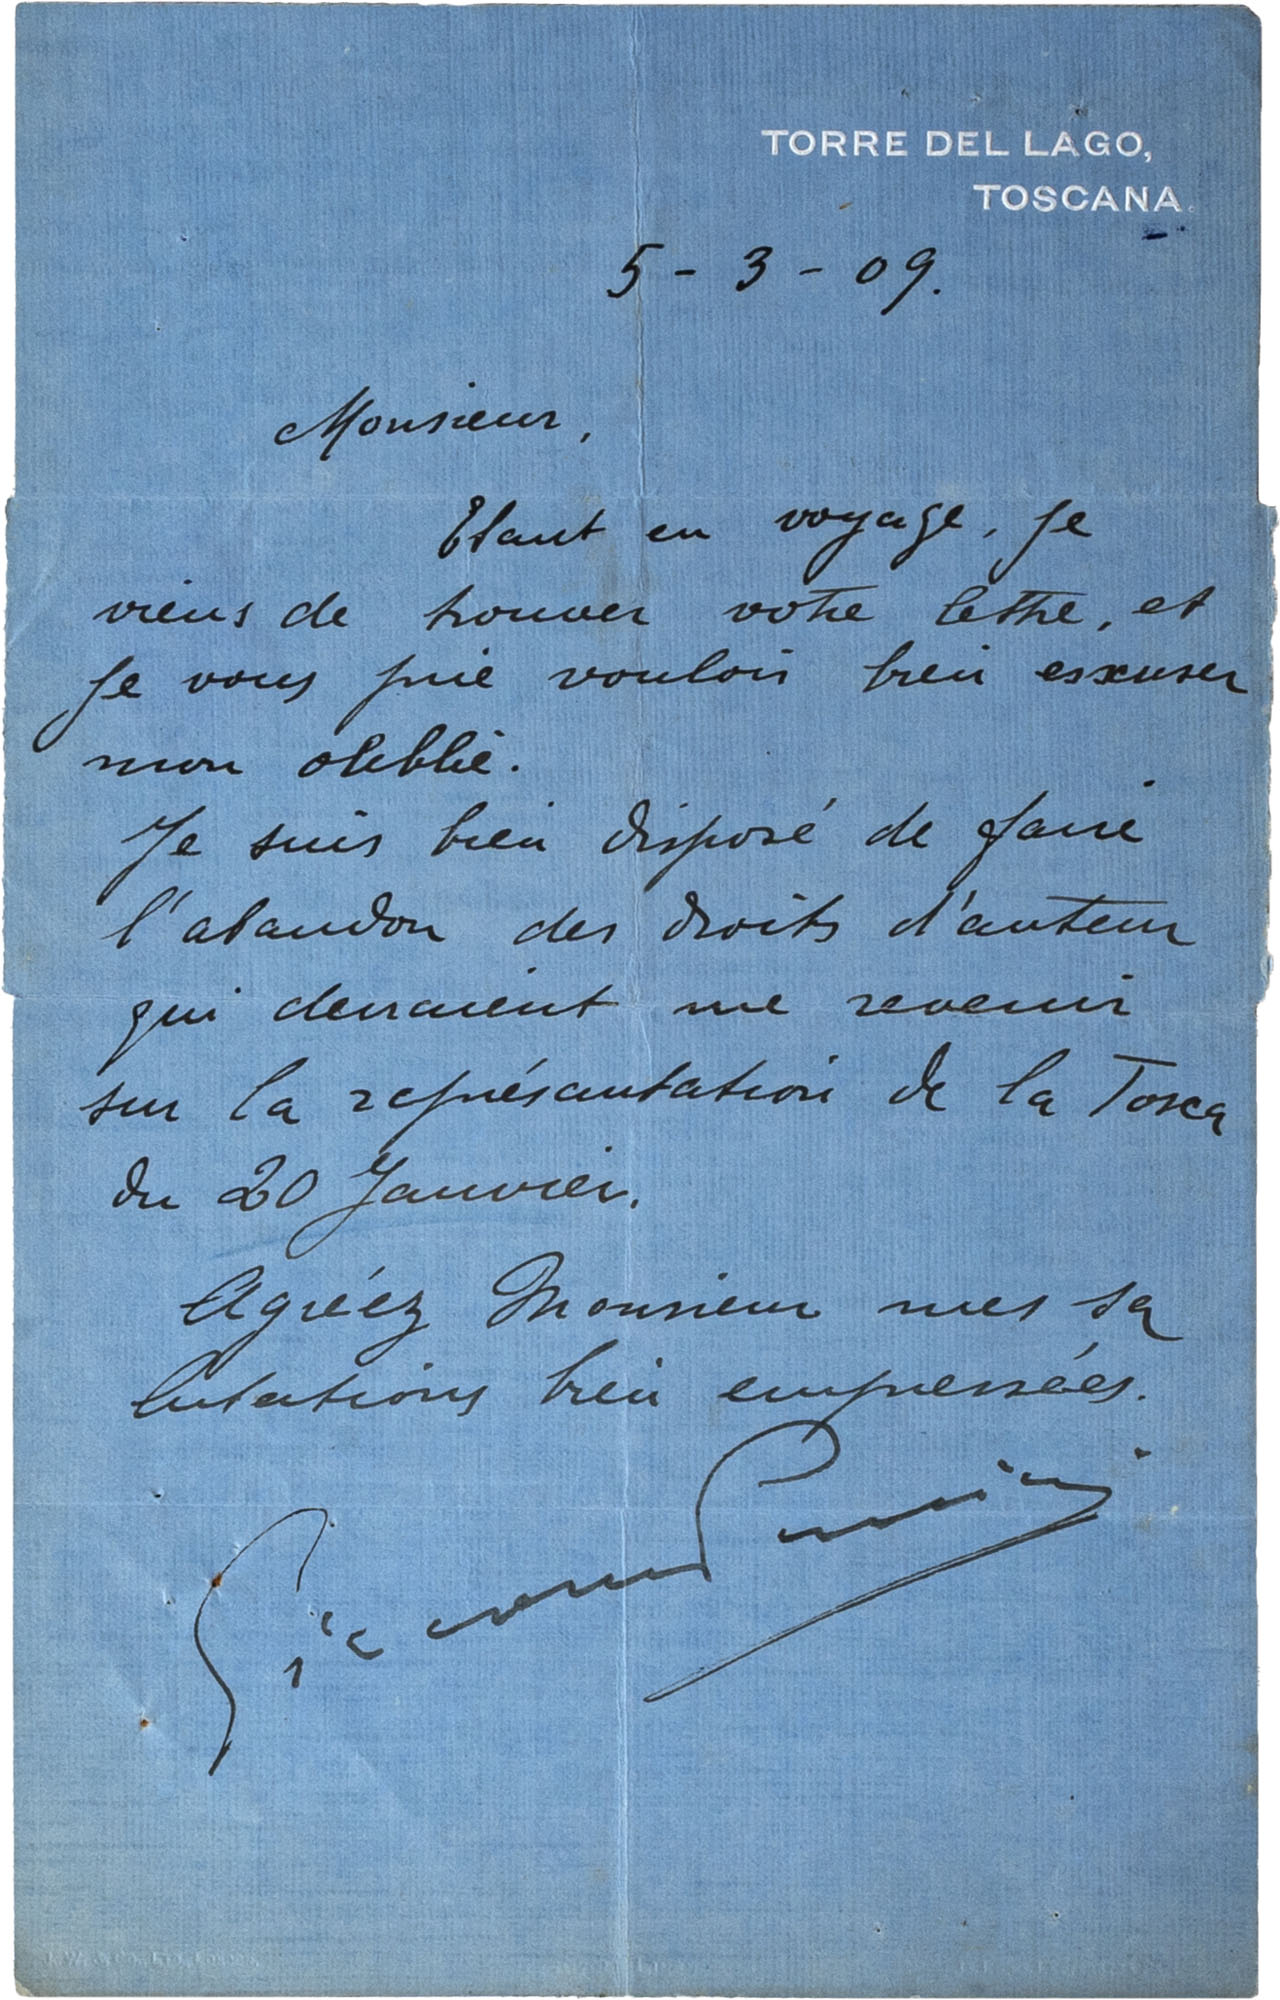 TORRE DEL LAGO,
TOSCANA.
5 - 3 - 09.
Monsieur,
Etant en voyage, je
viens de trouver votre lettre, et
je vous prie vouloir bien esxuser
mon obblié.
Je suis bien disposé de faire
l'abandon des droits d'auteur
qui devraient me revenir
sur la représantation de la Tosca
du 20 Janvier.
Agréez Monsieur mes sa
lutations bien empressées.
Giacomo Puccini